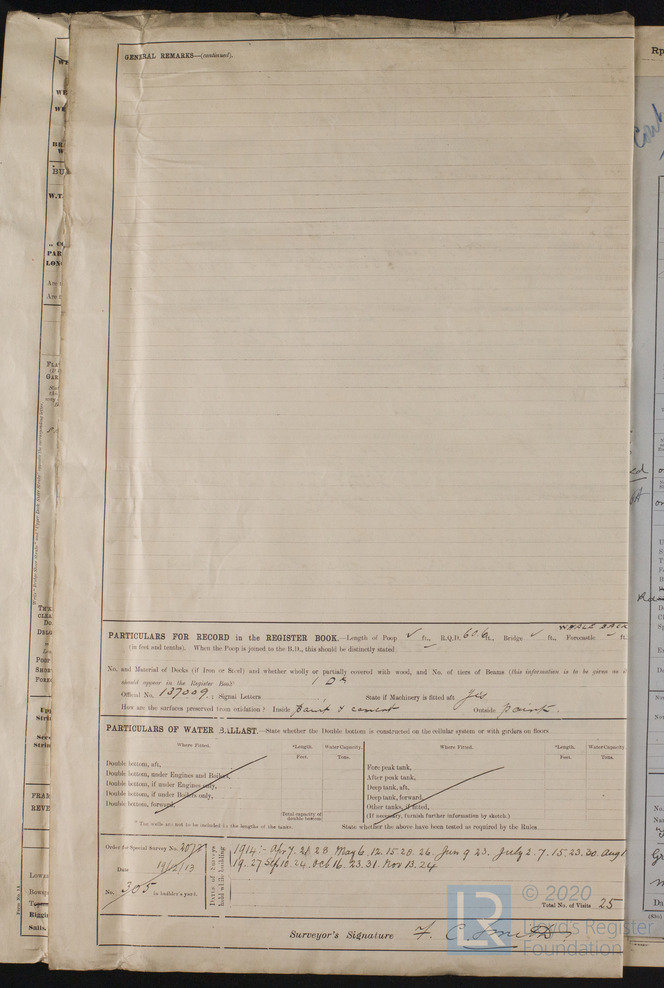 GENERAL REMARKS—(continued).
WHALE BACK
PARTICULARS FOR RECORD in the REGISTER BOOK.—Length of Poop ✓ ft., R.Q.D. ft., Bridge ✓ ft., Forecastle – ft.
(in feet and tenths). When the Poop is joined to the B.D., this should be distinctly stated –
No. and Material of Decks (if Iron or Steel) and whether wholly or partially covered with wood, and No. of tiers of Beams (this information is to be given as it
should appear in the Register Book) 1 Dk
Official No. 137009; Signal Letters State if Machinery is fitted aft Yes
How are the surfaces preserved from oxidation? Inside paint & cement Outside paint.
PARTICULARS OF WATER BALLAST.—State whether the Double bottom is constructed on the cellular system or with girders on floors
Where Fitted. *Length. Water Capacity. Where Fitted. *Length. Water Capacity.
Feet. Tons. Feet. Tons.
Double bottom, aft, Fore peak tank,
Double bottom, under Engines and Boilers, After peak tank,
Double bottom, if under Engines only, Deep tank, aft,
Double bottom, if under Boilers only, Deep tank, forward,
Double bottom, forward, Other tanks, if fitted,
Total capacity of double bottom (If necessary, furnish further information by sketch.)
* The wells are not to be included in the lengths of the tanks. State whether the above have been tested as required by the Rules
Order for Special Survey No.
Date 19/12/13
No. 305 in builder's yard.
Dates of Surveys held while building
1914:- Apr 7. 21. 28. May 6. 12. 15. 20. 26. Jun 9. 23. July 2. 7. 15. 23. 30. Aug 1
19. 27 Sep 10. 24. Oct 16. 23. 31. Nov 13. 24
Total No. of Visits 25
Surveyor's Signature F. C. Smith
LR © 2020
Lloyd's Register
Foundation